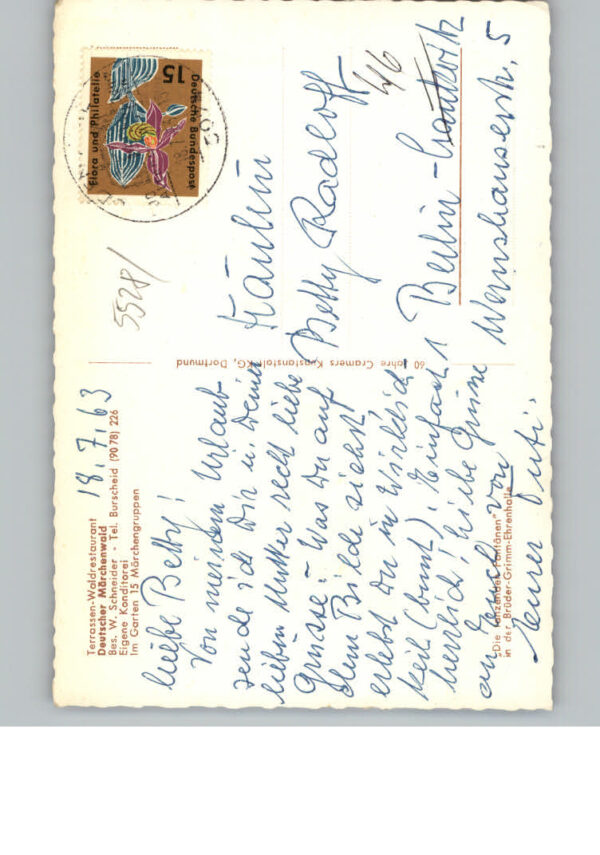 Terrassen-Waldrestaurant
Deutscher Märchenwald
Bes. W. Schneider - Tel. Burscheid (9078) 226
Eigene Konditorei
Im Garten 15 Märchengruppen
18.7.63
liebe Betty!
Von meinem Urlaub
sende ich Dir u. Deiner
lieben Mutter recht liebe
Grüsse. - Was Du auf
dem Bilde siehst
erlebst Du in Wirklich
keit (bunt). Einfach
herrlich! Liebe Grüsse
an Euch von
Eurer
"Die tanzenden Fontänen"
in der Brüder-Grimm-Ehrenhalle
60 Jahre Cramers Kunstanstalt KG, Dortmund
5528/
Flora und Philatelie
15
Deutsche Bundespost
Fräulein
Betty Radloff
1 Berlin-Lankwitz
46
Wernshauserstr. 5